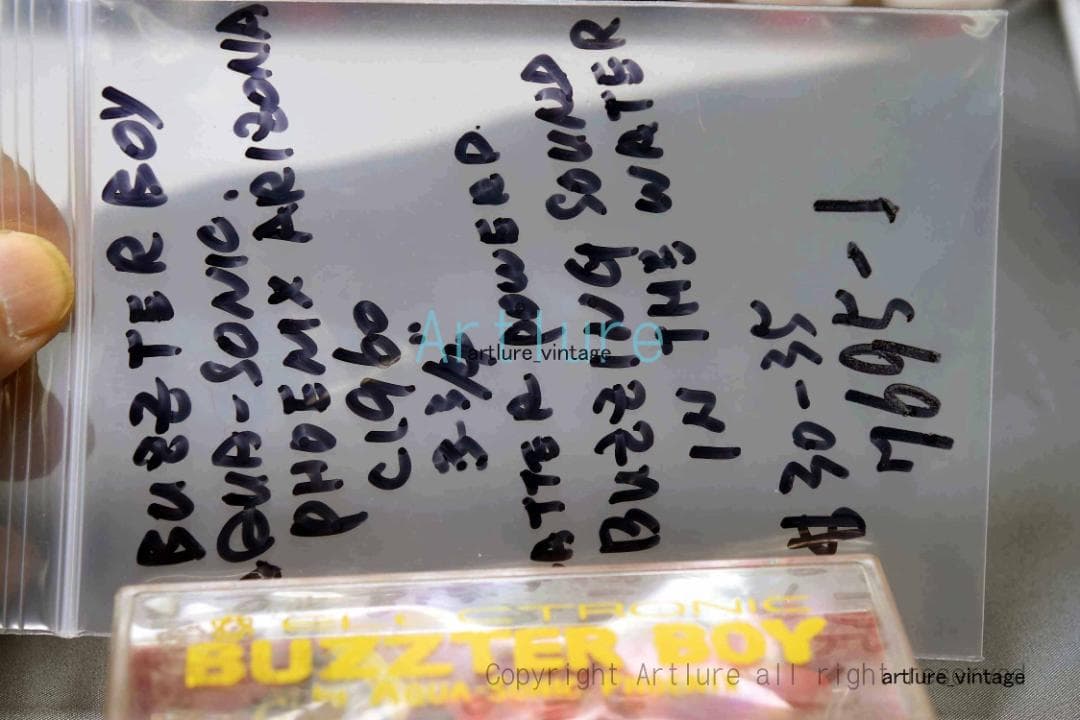 BUZZTER BOY
AQUA-SONIC.
PHOENIX ARIZONA
C1960
3-3/4"
BATTER POWERD.
BUZZING SOUND
IN THE WATER
A30-35
7695-1
ELECTRONIC
BUZZTER BOY
by AQUA-SONIC
Artlure
artlure_vintage
Copyright Artlure all right reserved
artlure_vintage